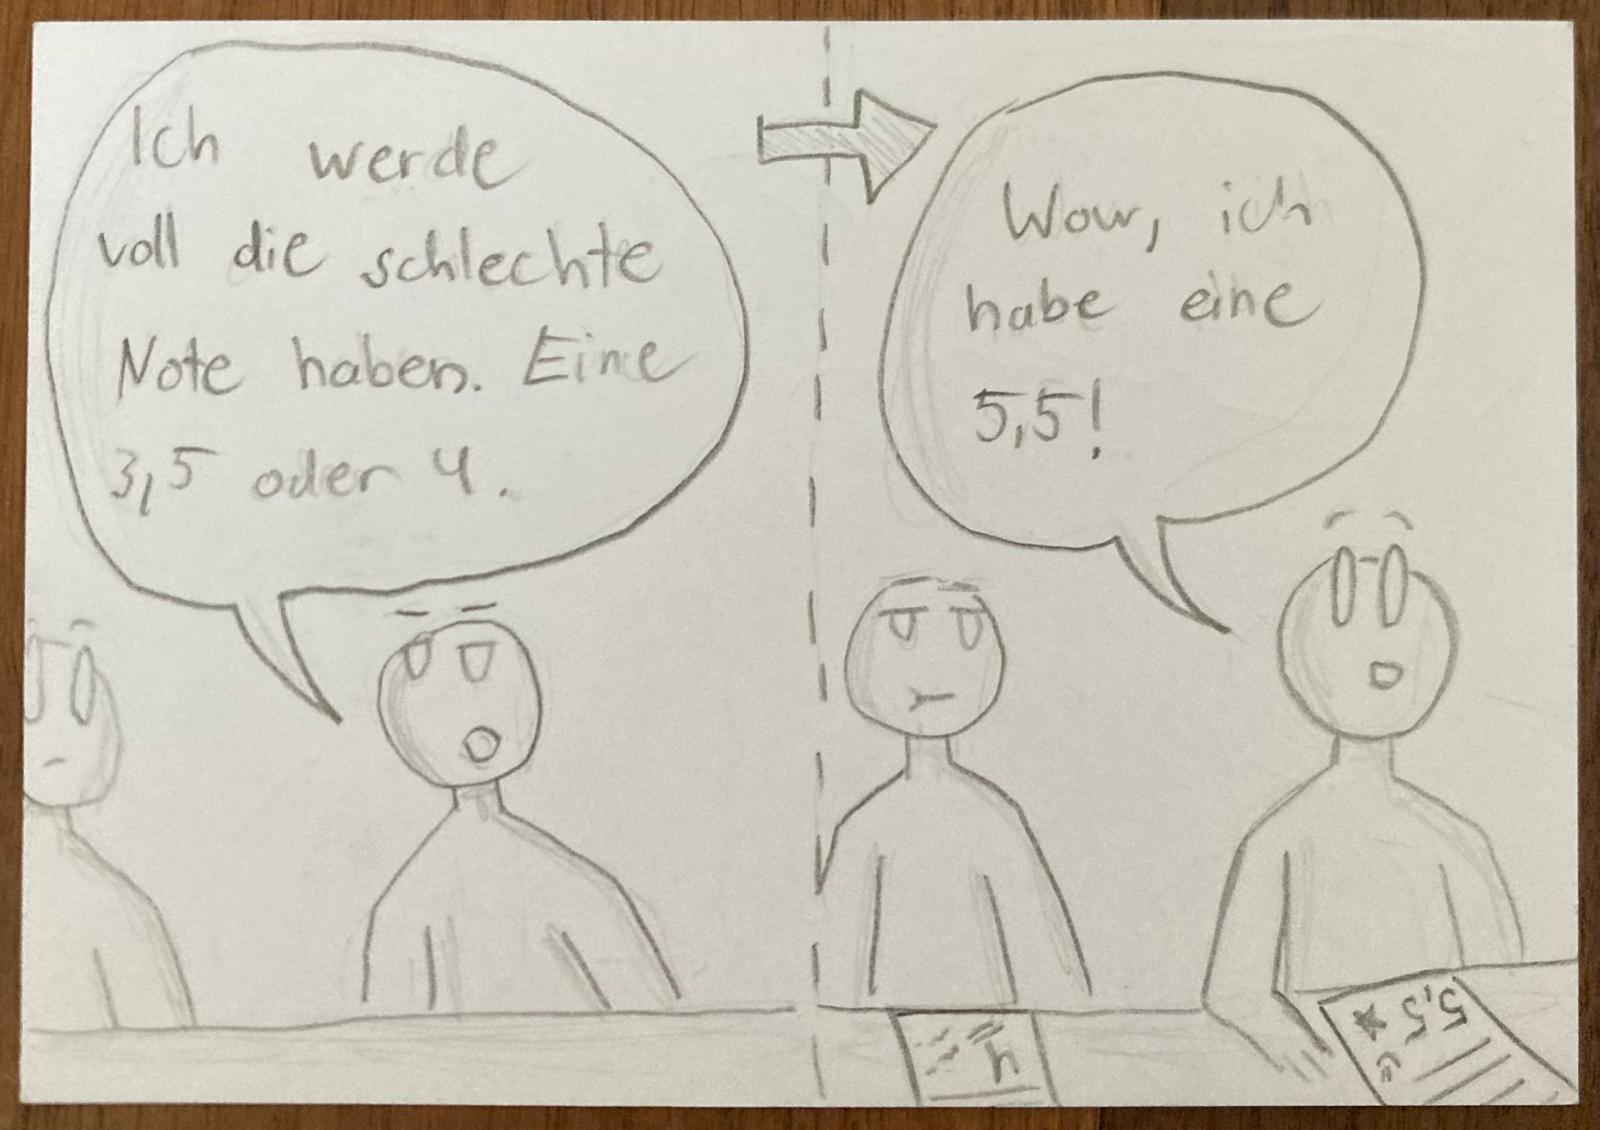 Ich werde
voll die schlechte
Note haben. Eine
3,5 oder 4.
Wow, ich
habe eine
5,5!
4
5,5